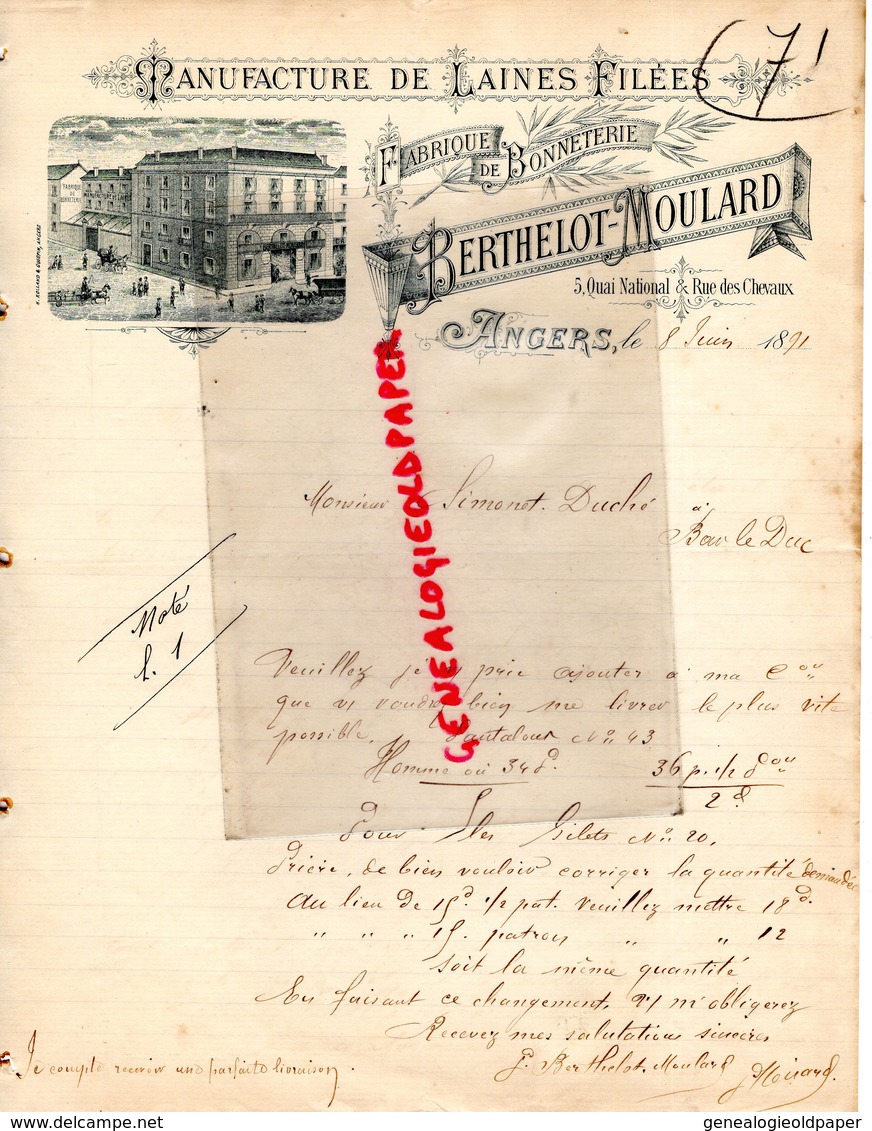 71
MANUFACTURE DE LAINES FILÉES
FABRIQUE DE BONNETERIE
BERTHELOT-MOULARD
5, Quai National & Rue des Chevaux
FABRIQUE DE BONNETERIE
ANGERS, le 8 Juin 1891
Monsieur Simonot-Duché
à
Bar le Duc
Noté
L. 1
Veuillez je prie ajouter à ma Cou
que vs voudrez bien me livrer le plus vite
possible. Pantalons No 43
Homme ou 34d. 36 p. 1/2 dou
2d
Pour les Gilets No 20,
Prière, de bien vouloir corriger la quantité demandée
au lieu de 15d 1/2 pat. veuillez mettre 18d.
" " " 15. patron " " 12
soit la même quantité
En faisant ce changement, vs m'obligerez
Recevez mes salutations sincères
Berthelot-Moulard
Je compte recevoir une parfaite livraison.
GENEALOGIEOLDPAPER
genealogieoldpaper